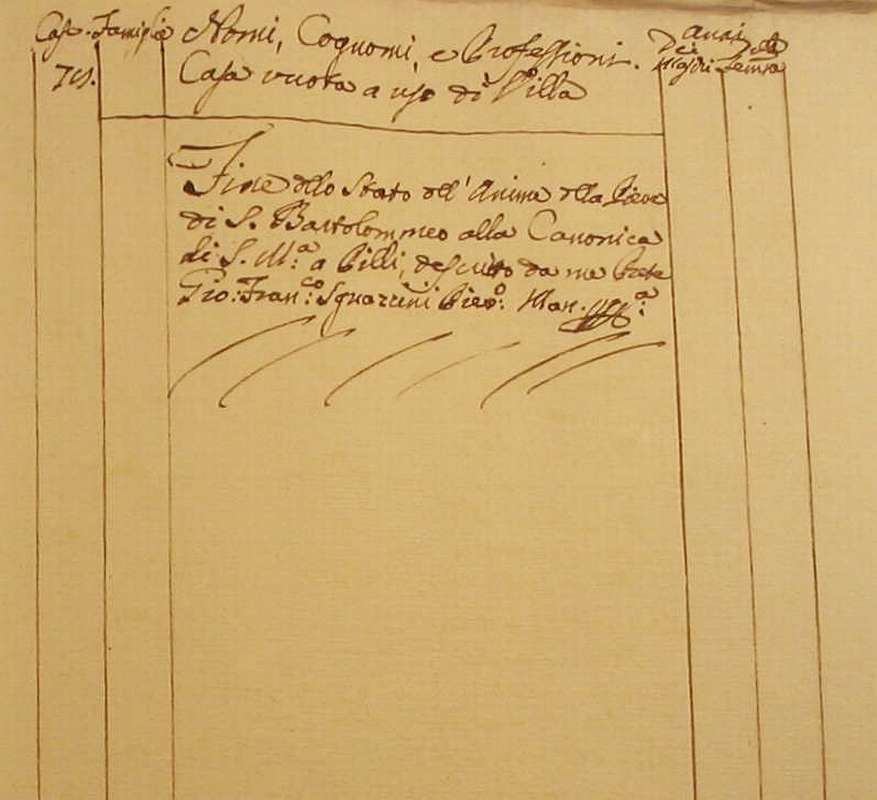 Case. Famiglie Nomi, Cognomi, e Professioni. Anni
Dei Maschi delle Femine
Casa vuota a uso di Villa
Fine dello Stato dell' Anime della Pieve
di S. Bartolommeo alla Canonica
di S. M.a a Pilli, descritto da me Prete
Gio: Fran.co Sguazzini Piev.o: Man.